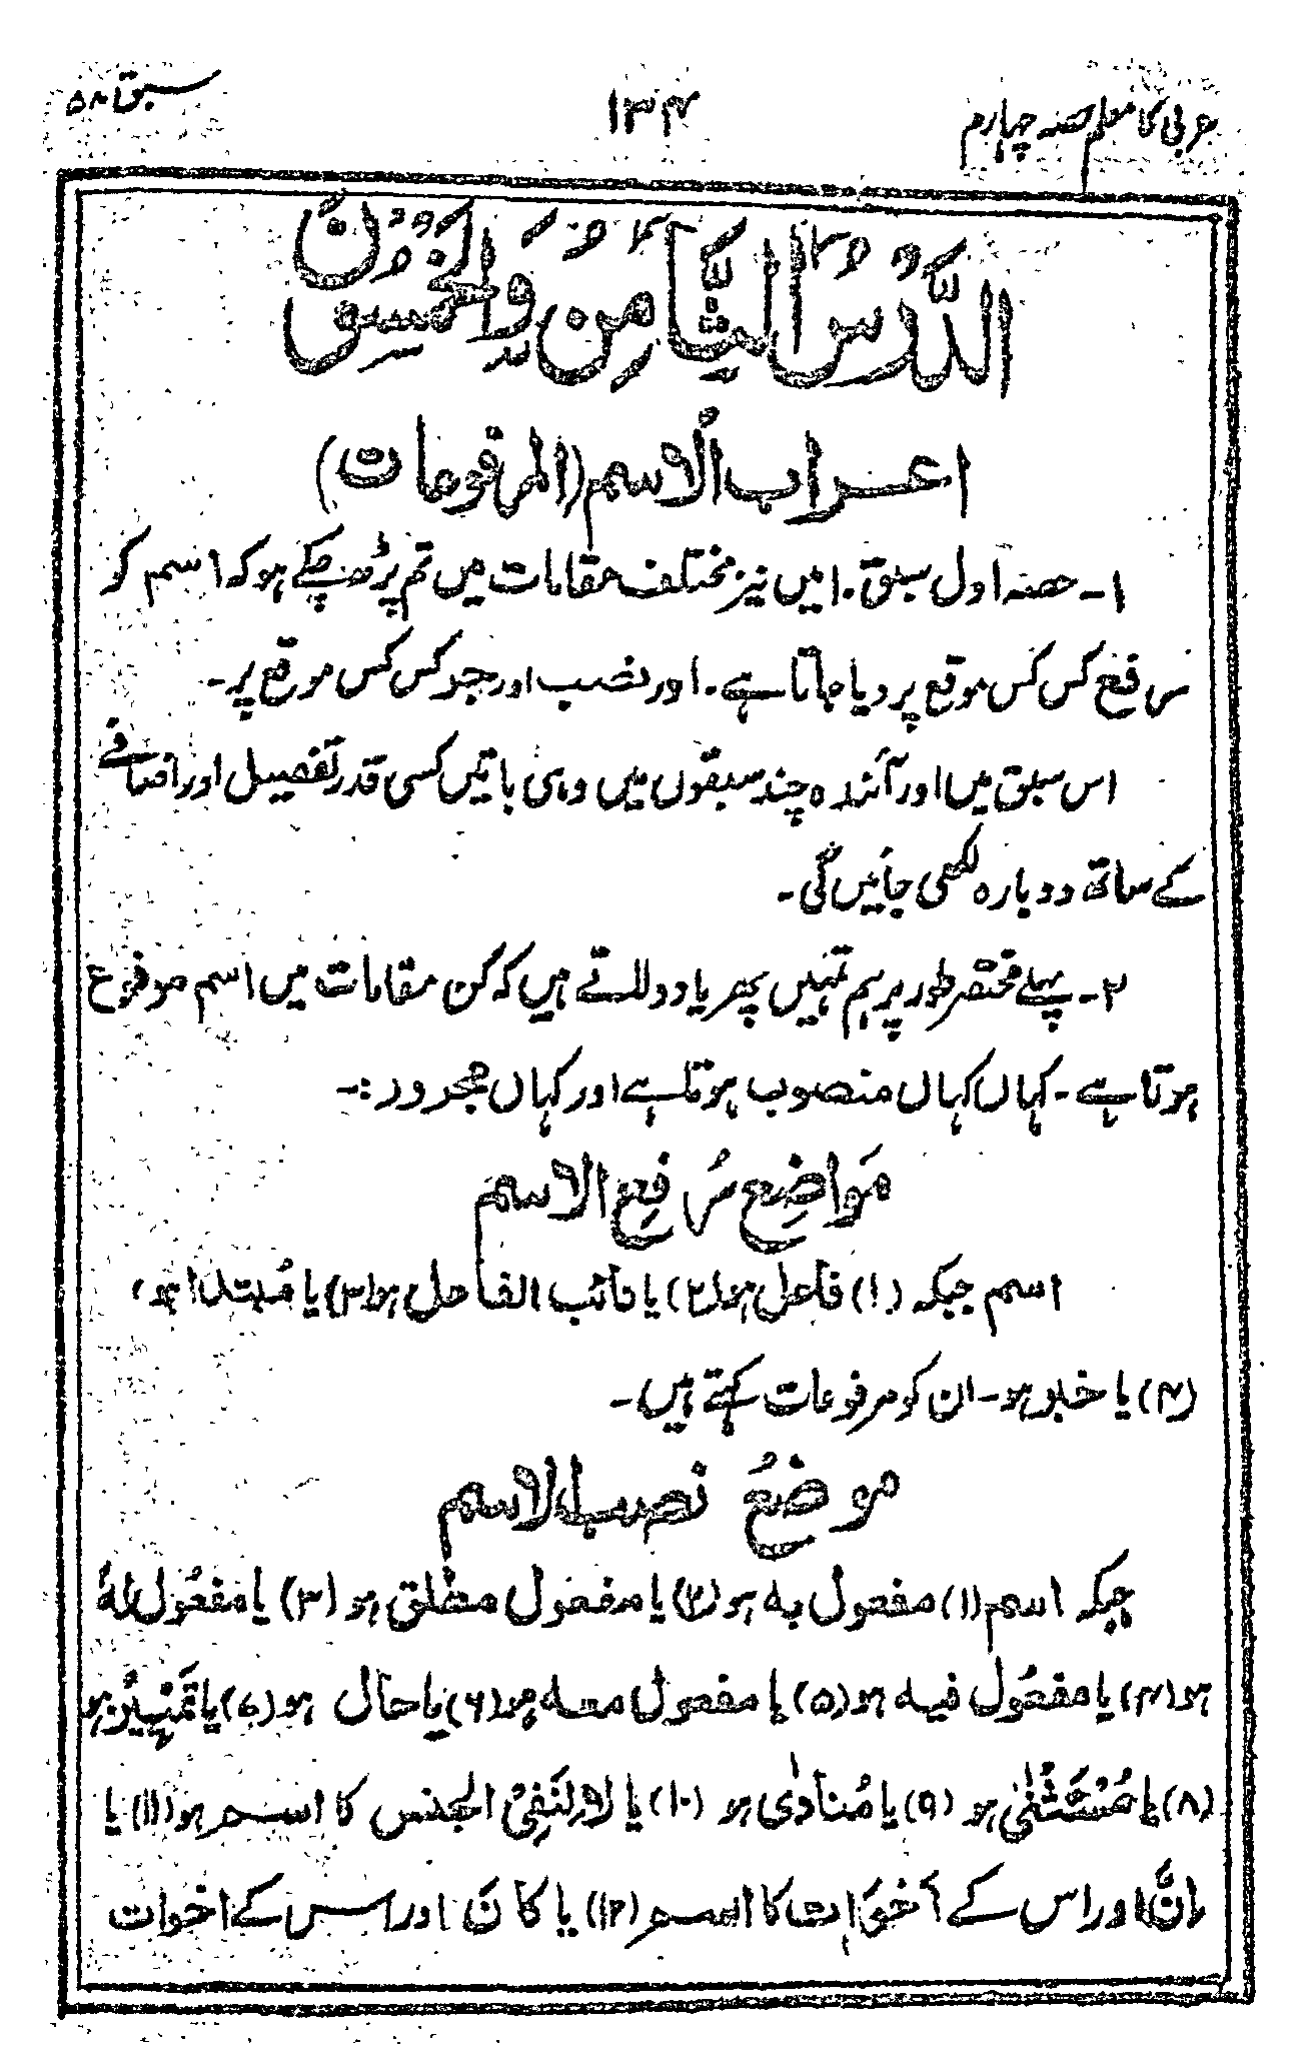 عربی کا معلم حصہ چہارم
۱۳۴
سبق ۵۸
اَلدَّرْسُ الثَّامِنُ وَالْخَمْسُوْنَ
اعراب الاسم (المرفوعات)
۱- حصہ اول سبق ۱۰ میں نیز مختلف مقامات میں تم پڑھ چکے ہو کہ اسم کو
رفع کس کس موقع پر دیا جاتا ہے۔ اور نصب اور جر کس کس موقع پر۔
اس سبق میں اور آئندہ چند سبقوں میں وہی باتیں کسی قدر تفصیل اور اضافے
کے ساتھ دوبارہ لکھی جائیں گی۔
۲- پہلے مختصر طور پر ہم تمہیں پھر یاد دلاتے ہیں کہ کن مقامات میں اسم مرفوع
ہوتا ہے۔ کہاں کہاں منصوب ہوتا ہے اور کہاں مجرور :-
مَوَاضِع رَفعِ الاسم
اسم جبکہ (۱) فاعل ہو (۲) یا نائب الفاعل ہو (۳) یا مُبتدا ہو،
(۴) یا خبر ہو- ان کو مرفوعات کہتے ہیں۔
موضعُ نصب الاسم
جبکہ اسم (۱) مفعول بہ ہو (۲) یا مفعول مطلق ہو (۳) یا مفعُول لہٗ
ہو (۴) یا مفعُول فیہ ہو (۵) یا مفعول معہ ہو (۶) یا حال ہو (۷) یا تَمْیِیْز ہو
(۸) یا مُسْتَثْنٰی ہو (۹) یا مُنادٰی ہو (۱۰) یا لا لِنَفِیْ الجنس کا اسم ہو (۱۱) یا
اِنَّ اور اس کے اَخَوَات کا اسم (۱۲) یا کَانَ اور اس کے اخوات